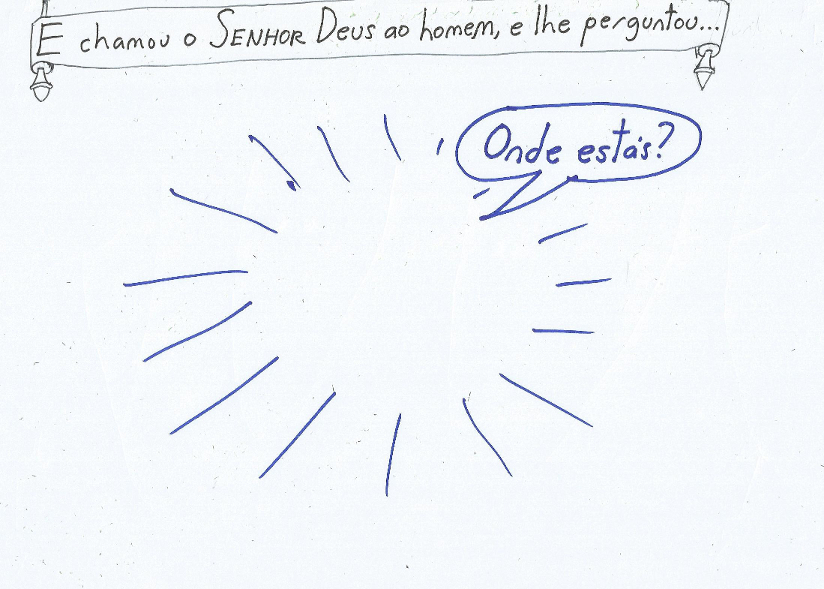 E chamou o SENHOR Deus ao homem, e lhe perguntou...
Onde estás?